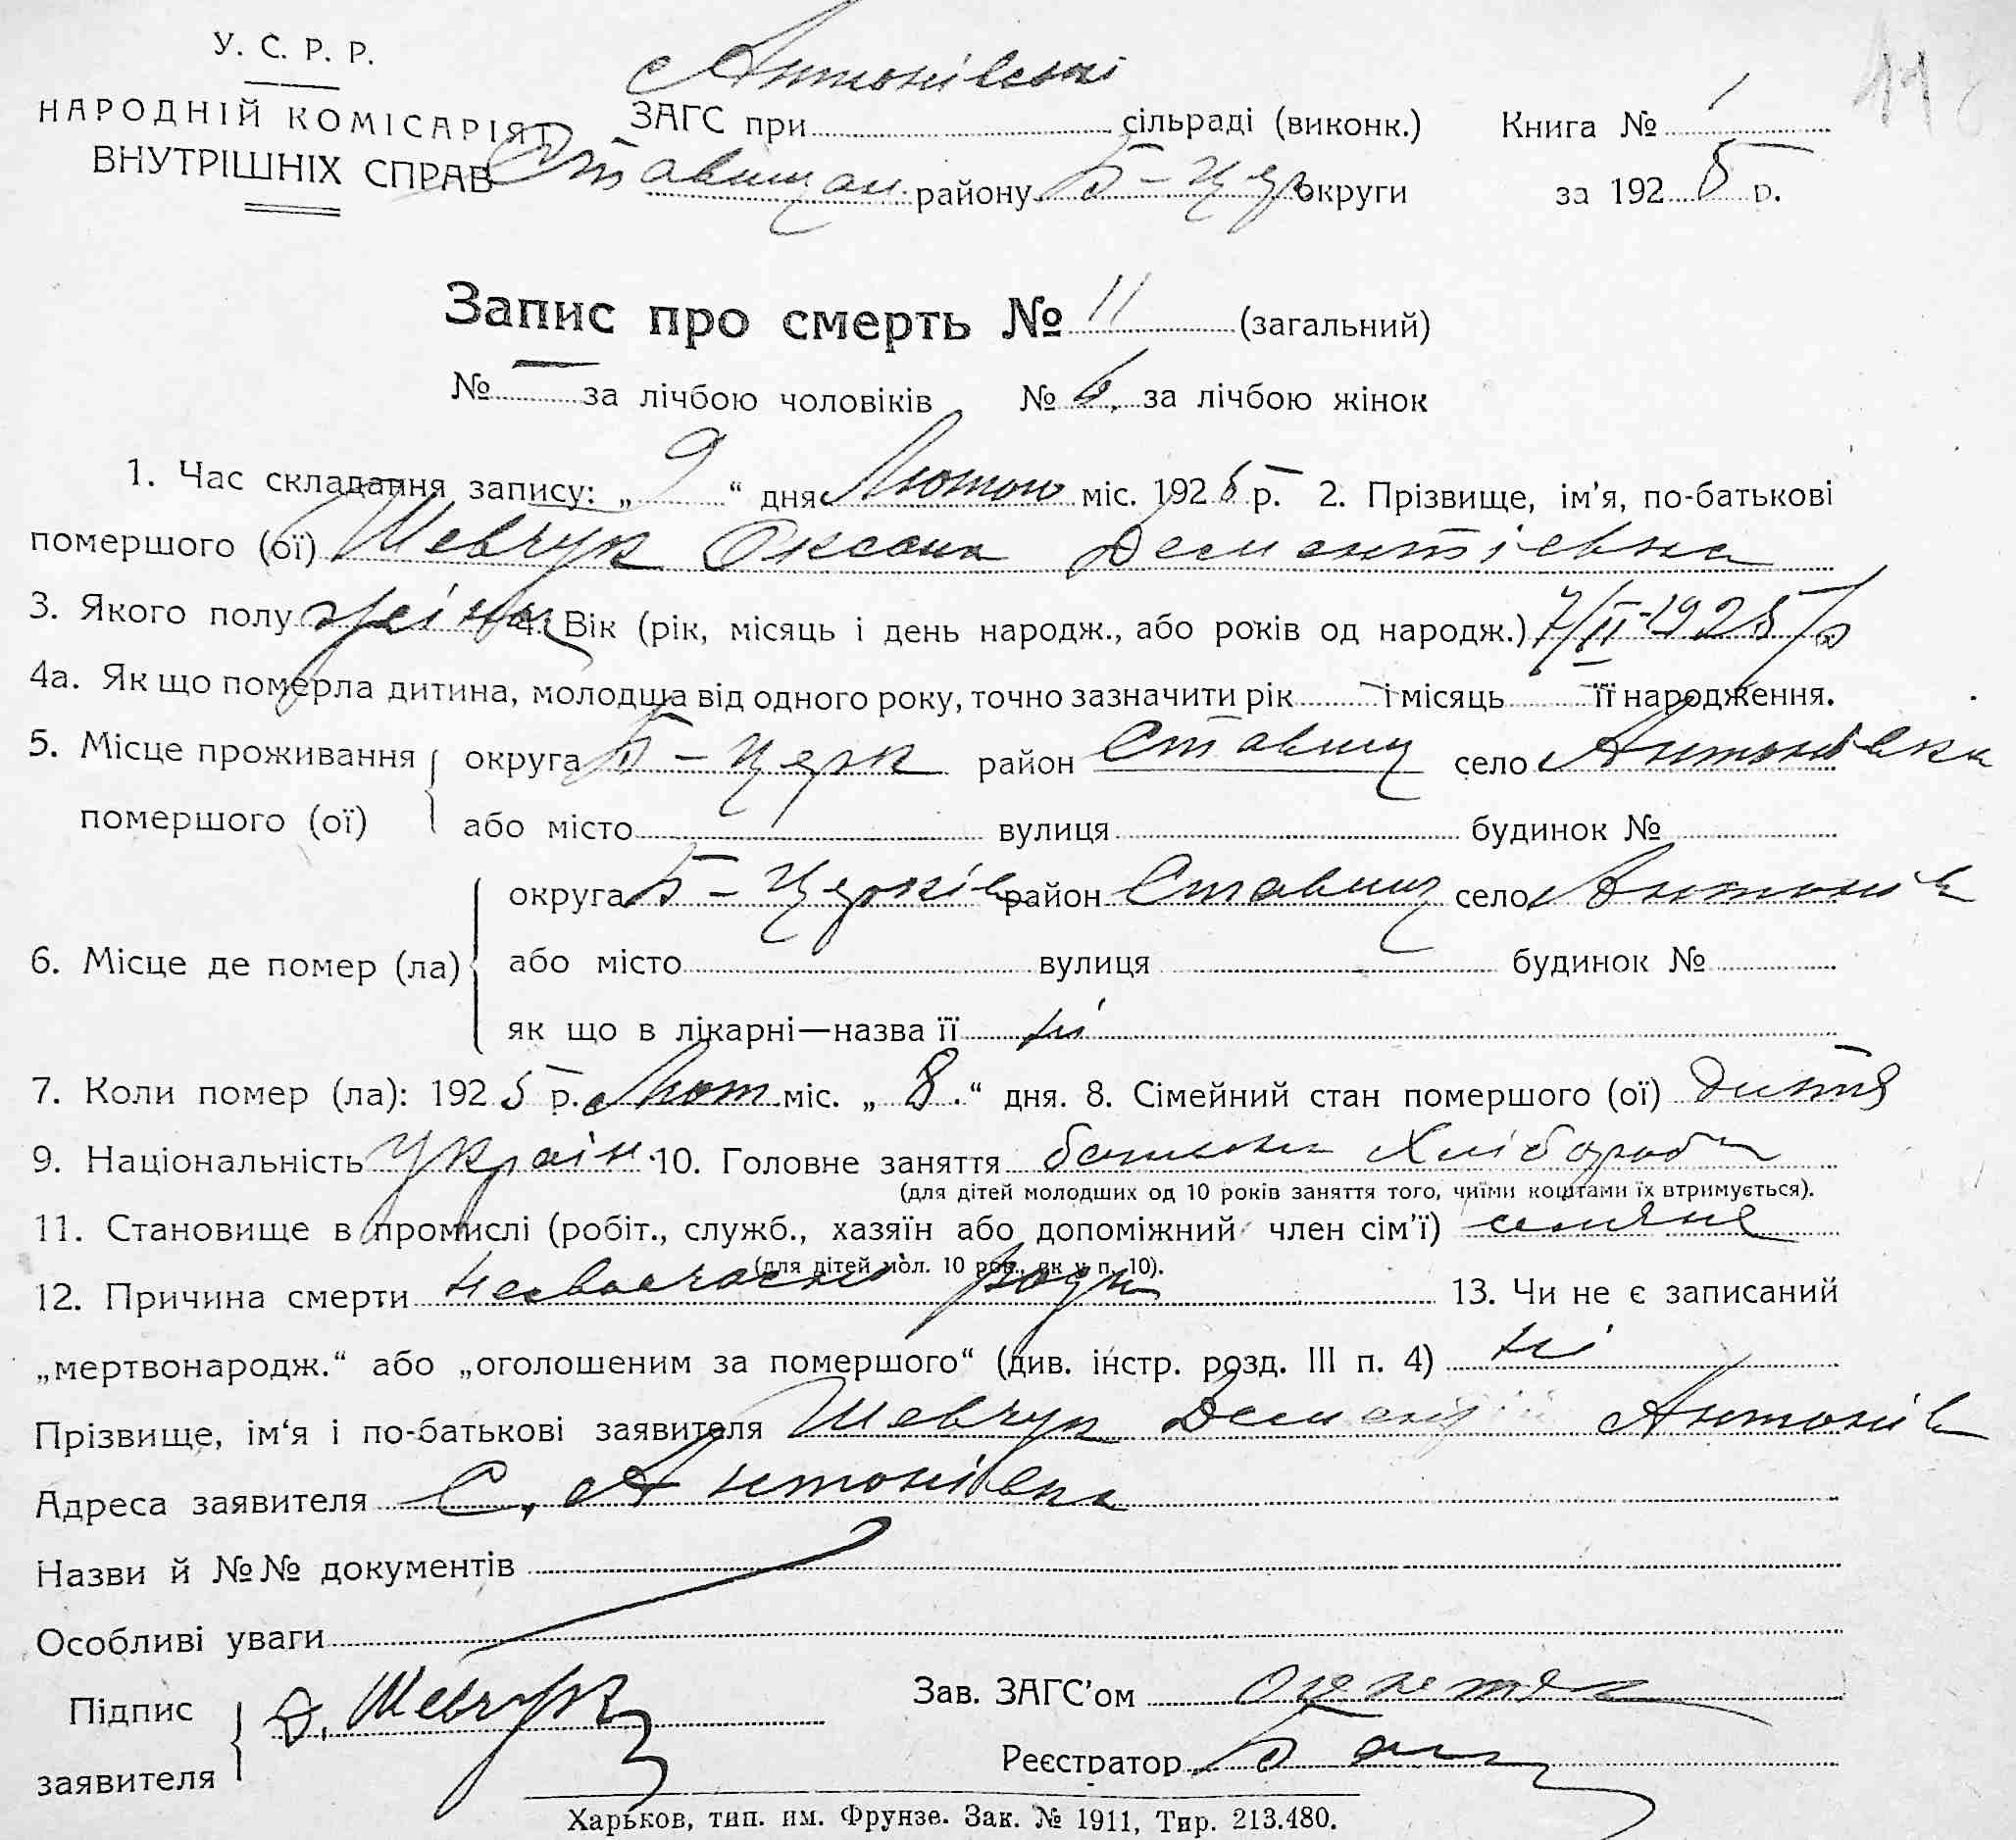 У. С. Р. Р.
НАРОДНІЙ КОМІСАРІЯТ
ВНУТРІШНІХ СПРАВ
Антонівські
ЗАГС при сільраді (виконк.) Книга № 1
11
Ставищан. району Б-Цер округи за 1925 р.
Запис про смерть № 11 (загальний)
№ — за лічбою чоловіків № 6. за лічбою жінок
1. Час складання запису: „ 9 “ дня Лютого міс. 1925 р. 2. Прізвище, ім'я, по-батькові
помершого (ої) Шевчук Оксана Дементіевна
3. Якого полу жіноч 4. Вік (рік, місяць і день народж., або років од народж.) 7/II-1925 р
4а. Як що померла дитина, молодша від одного року, точно зазначити рік — і місяць — її народження.
5. Місце проживання округа Б-Церк район Ставищ село Антонівка
помершого (ої) або місто вулиця будинок №
округа Б-Церків район Ставищ село Антонів
6. Місце де помер (ла) або місто вулиця будинок №
як що в лікарні—назва її ні
7. Коли помер (ла): 1925 р. Лют. міс. „ 8. “ дня. 8. Сімейний стан помершого (ої) дитя
9. Національність Україн. 10. Головне заняття батька Хлібороб
(для дітей молодших од 10 років заняття того, чиїми коштами їх втримується).
11. Становище в промислі (робіт., служб., хазяїн або допоміжний член сім'ї) селяне
(для дітей мол. 10 рок., як у п. 10).
12. Причина смерти несвоечасні роди 13. Чи не є записаний
„мертвонародж.“ або „оголошеним за помершого“ (див. інстр. розд. III п. 4) ні
Прізвище, ім‘я і по-батькові заявителя Шевчук Дементій Антонів
Адреса заявителя С. Антонівка
Назви й №№ документів
Особливі уваги
Підпис Д. Шевчук Зав. ЗАГС'ом
заявителя Реєстратор
Харьков, тип. им. Фрунзе. Зак. № 1911, Тир. 213.480.